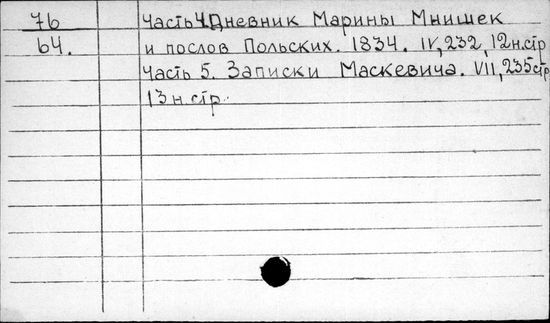 76 Часть 4. Дневник Марины Мнишек
64. и послов Польских. 1834. IV, 232, 12н.стр
Часть 5. Записки Маскевича. VII, 235стр
13н.стр.